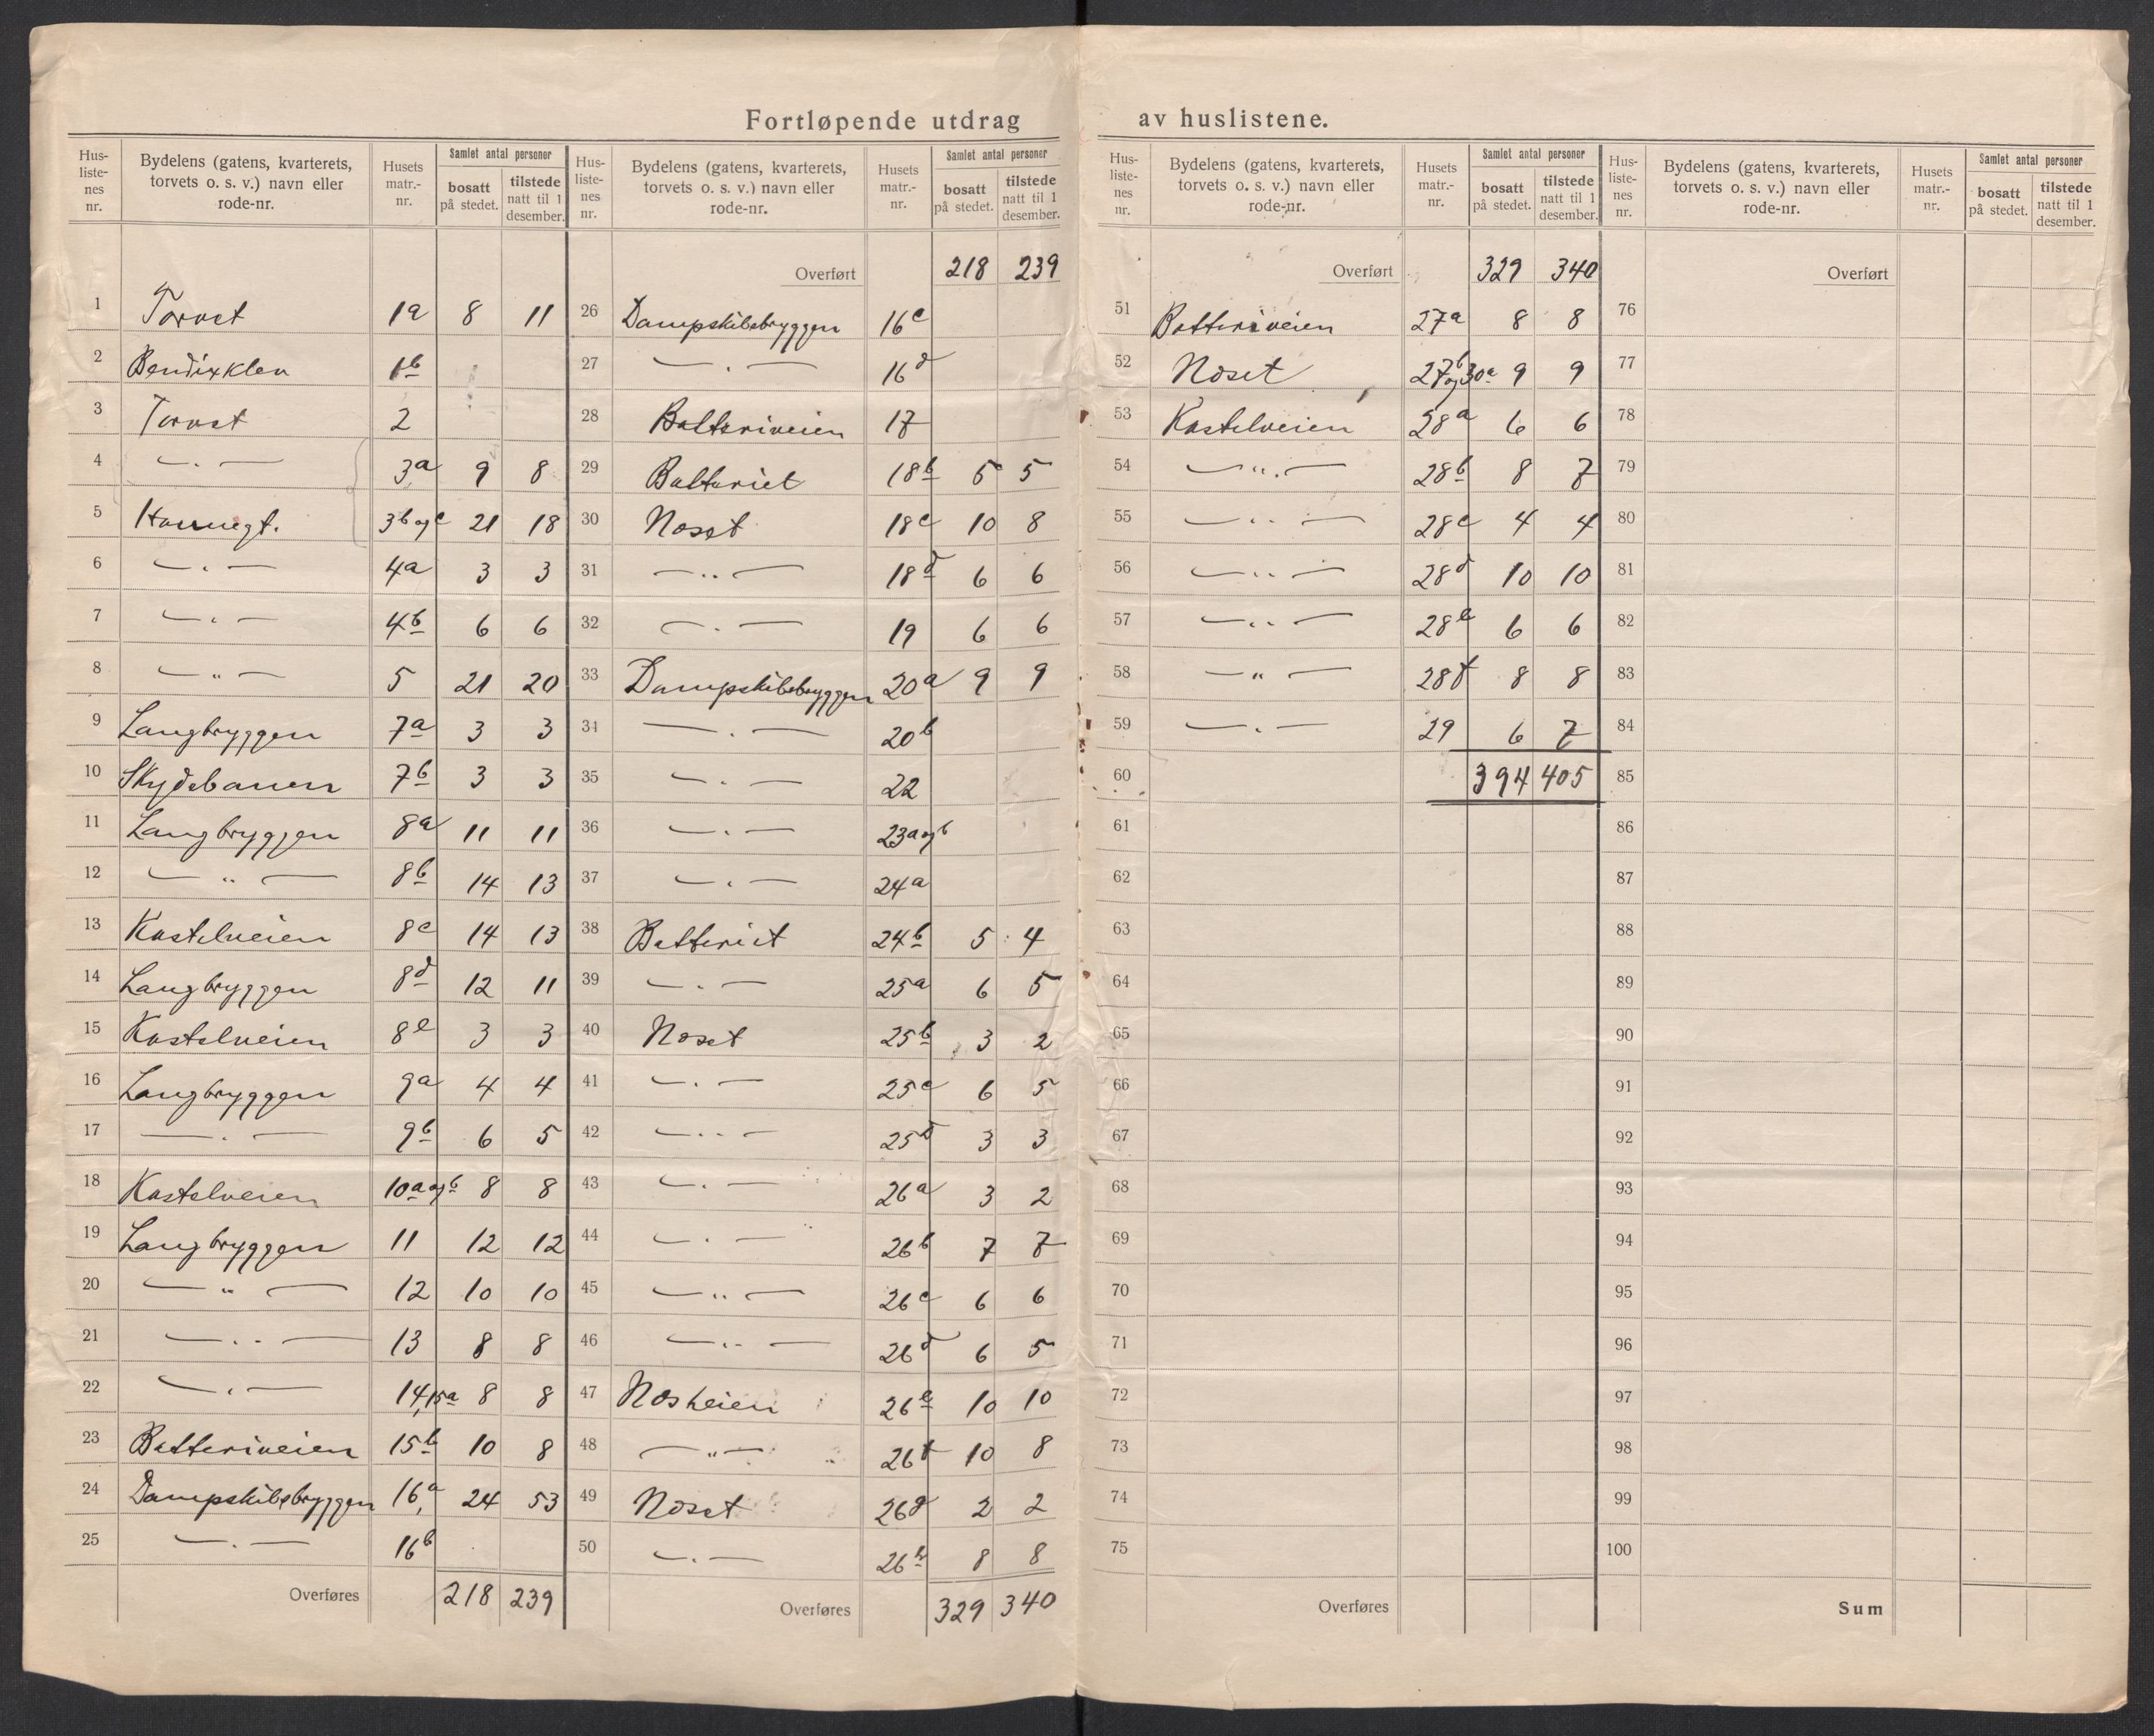 Fortløpende utdrag av huslistene.
Hus-listenes nr. | Bydelens (gatens, kvarterets, torvets o. s. v.) navn eller rode-nr. | Husets matr.-nr. | Samlet antal personer bosatt på stedet. | tilstede natt til 1 desember.
1 Torvet 1a 8 11
2 Bendixklev 1b
3 Torvet 2
4 — . — 3a 9 8
5 Havnegt. 3b og c 21 18
6 — . — 4a 3 3
7 — . — 4b 6 6
8 — " — 5 21 20
9 Langbryggen 7a 3 3
10 Skydebanen 7b 3 3
11 Langbryggen 8a 11 11
12 — " — 8b 14 13
13 Kastelveien 8c 14 13
14 Langbryggen 8d 12 11
15 Kastelveien 8e 3 3
16 Langbryggen 9a 4 4
17 — . — 9b 6 5
18 Kastelveien 10a og b 8 8
19 Langbryggen 11 12 12
20 — " — 12 10 10
21 — . . — 13 8 8
22 — . — 14, 15a 8 8
23 Batteriveien 15b 10 8
24 Dampskibsbryggen 16a 24 53
25 — . — 16b
Overføres 218 239
Hus-listenes nr. | Bydelens (gatens, kvarterets, torvets o. s. v.) navn eller rode-nr. | Husets matr.-nr. | Samlet antal personer bosatt på stedet. | tilstede natt til 1 desember.
Overført 218 239
26 Dampskibsbryggen 16c
27 — . — 16d
28 Batteriveien 17
29 Batteriet 18b 5 5
30 Næset 18c 10 8
31 — . . — 18d 6 6
32 — . — 19 6 6
33 Dampskibsbryggen 20a 9 9
34 — . — 20b
35 — . — 22
36 — . — 23a og b
37 — . — 24a
38 Batteriet 24b 5 4
39 — . — 25a 6 5
40 Næset 25b 3 2
41 — . — 25c 6 5
42 — . . — 25d 3 3
43 — . — 26a 3 2
44 — . — 26b 7 7
45 — . . — 26c 6 6
46 — . . — 26d 6 5
47 Næsheien 26e 10 10
48 — " — 26f 10 8
49 Næset 26g 2 2
50 — . — 26h 8 8
Overføres 329 340
Hus-listenes nr. | Bydelens (gatens, kvarterets, torvets o. s. v.) navn eller rode-nr. | Husets matr.-nr. | Samlet antal personer bosatt på stedet. | tilstede natt til 1 desember.
Overført 329 340
51 Batteriveien 27a 8 8
52 Næset 27b og 30a 9 9
53 Kastelveien 28a 6 6
54 — " . — 28b 8 7
55 — . . — 28c 4 4
56 — . . — 28d 10 10
57 — . . — 28e 6 6
58 — " — 28f 8 8
59 — . — 29 6 7
60 394 405
61
62
63
64
65
66
67
68
69
70
71
72
73
74
75
Overføres
Hus-listenes nr. | Bydelens (gatens, kvarterets, torvets o. s. v.) navn eller rode-nr. | Husets matr.-nr. | Samlet antal personer bosatt på stedet. | tilstede natt til 1 desember.
Overført
76
77
78
79
80
81
82
83
84
85
86
87
88
89
90
91
92
93
94
95
96
97
98
99
100
Sum